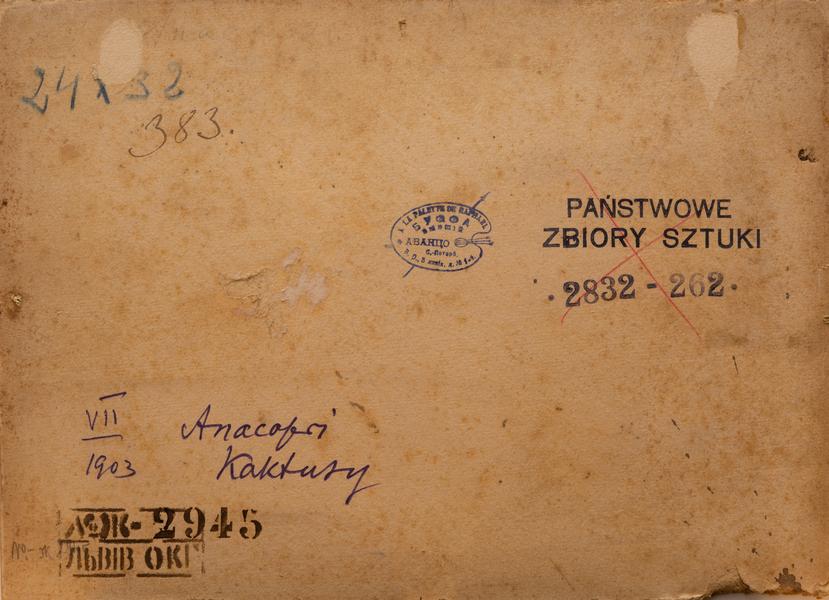 24 x 32
383.
A LA PALETTE DE RAPHAEL
АВАНЦО
PAŃSTWOWE
ZBIORY SZTUKI
· 2832 - 262 ·
VII
1903
Anacapri
Kaktusy
№Ж- 2945
ЛЬВІВ ОКГ